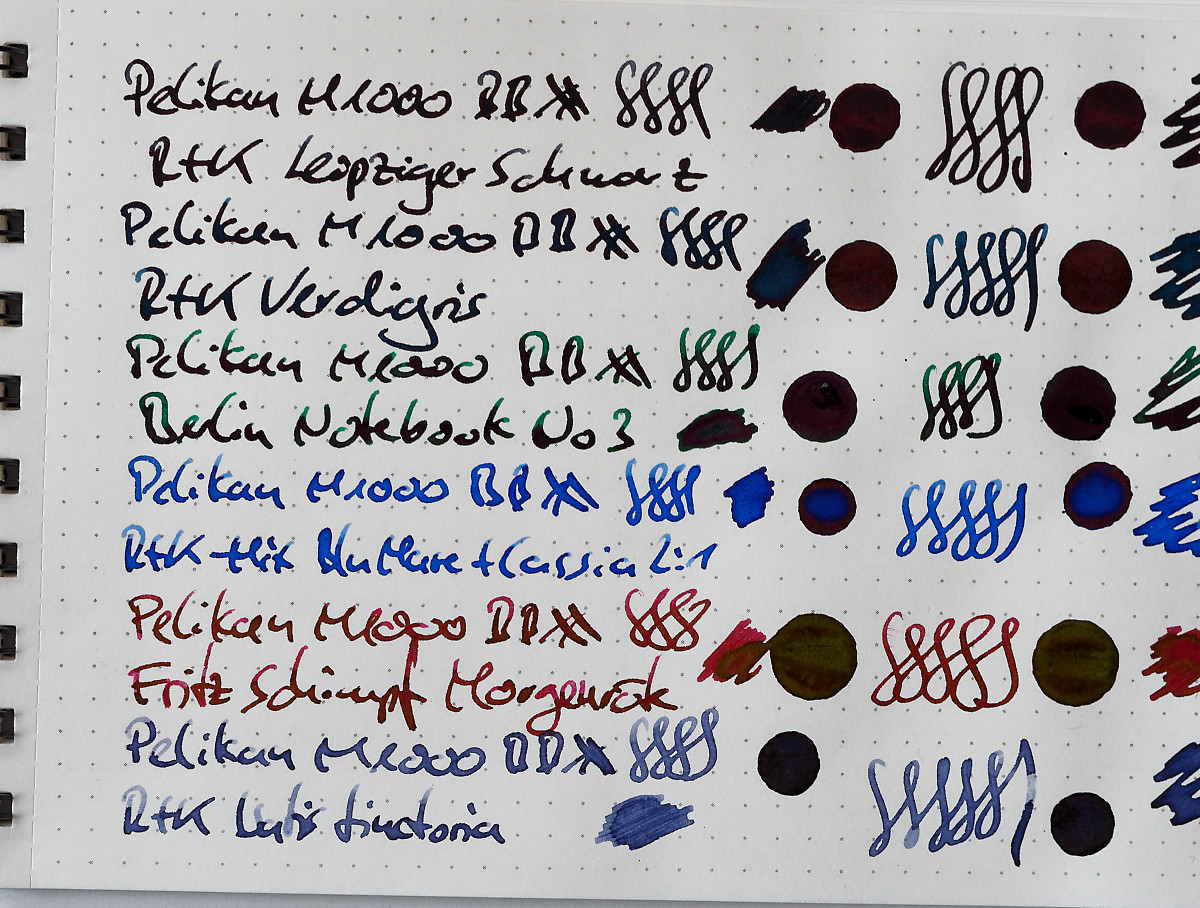 Pelikan M1000 BB #
R+K Leipziger Schwarz
Pelikan M1000 BB #
R+K Verdigris
Pelikan M1000 BB #
Berlin Notebook No 3
Pelikan M1000 BB #
R+K Mix Blu Mare + Cassia 2:1
Pelikan M1000 BB #
Fritz Schimpf Morgenröte
Pelikan M1000 BB #
R+K tinctoria